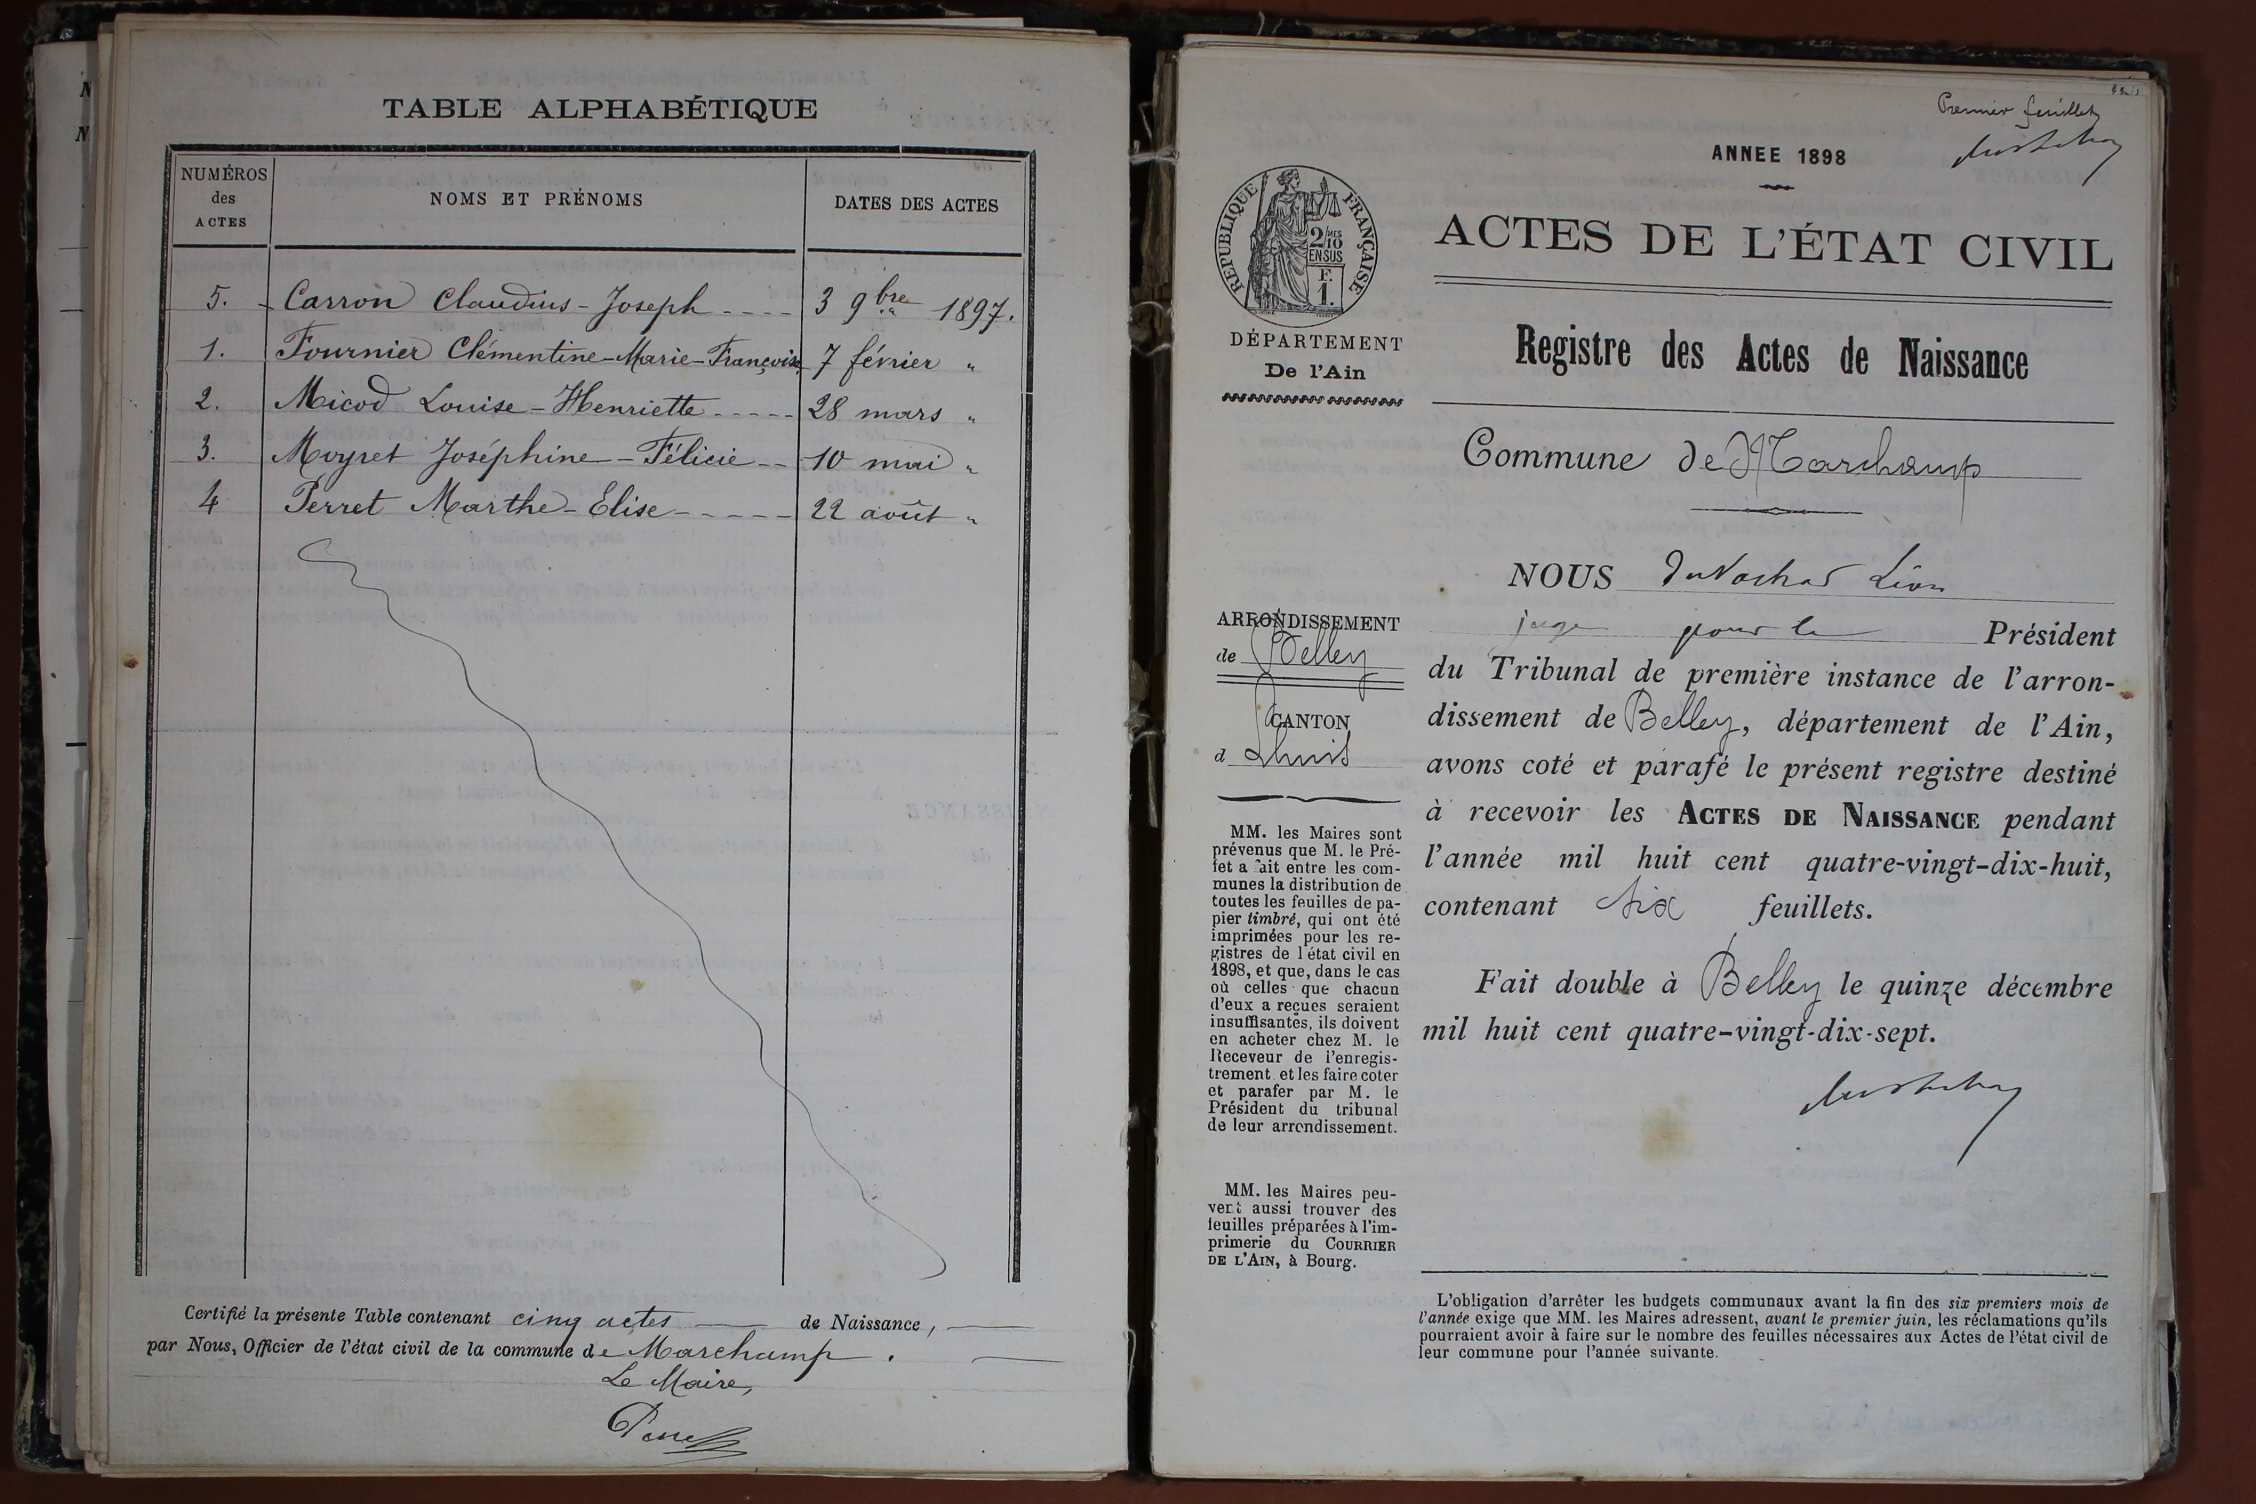 TABLE ALPHABÉTIQUE
NUMÉROS
des
ACTES
NOMS ET PRÉNOMS
DATES DES ACTES
5. Carron Claudius-Joseph 3 9bre 1897.
1. Fournier Clémentine-Marie-Françoise 7 février "
2. Micod Louise-Henriette 28 mars "
3. Moyret Joséphine-Félicie 10 mai "
4 Perret Marthe-Elise 22 août "
Certifié la présente Table contenant cinq actes de Naissance,
par Nous, Officier de l'état civil de la commune de Marchamp.
Le Maire,
Premier feuillet
ANNEE 1898
REPUBLIQUE FRANÇAISE
2/10 MES
EN SUS
F.
1.
DÉPARTEMENT
De l'Ain
ACTES DE L'ÉTAT CIVIL
Registre des Actes de Naissance
Commune de Marchamp
ARRONDISSEMENT
de Belley
CANTON
d Lhuis
MM. les Maires sont
prévenus que M. le Pré-
fet a fait entre les com-
munes la distribution de
toutes les feuilles de pa-
pier timbré, qui ont été
imprimées pour les re-
gistres de l'état civil en
1898, et que, dans le cas
où celles que chacun
d'eux a reçues seraient
insuffisantes, ils doivent
en acheter chez M. le
Receveur de l'enregis-
trement et les faire coter
et parafer par M. le
Président du tribunal
de leur arrondissement.
MM. les Maires peu-
vent aussi trouver des
feuilles préparées à l'im-
primerie du COURRIER
DE L'AIN, à Bourg.
NOUS Léon
juge pour le Président
du Tribunal de première instance de l'arron-
dissement de Belley, département de l'Ain,
avons coté et parafé le présent registre destiné
à recevoir les ACTES DE NAISSANCE pendant
l'année mil huit cent quatre-vingt-dix-huit,
contenant six feuillets.
Fait double à Belley le quinze décembre
mil huit cent quatre-vingt-dix-sept.
L'obligation d'arrêter les budgets communaux avant la fin des six premiers mois de
l'année exige que MM. les Maires adressent, avant le premier juin, les réclamations qu'ils
pourraient avoir à faire sur le nombre des feuilles nécessaires aux Actes de l'état civil de
leur commune pour l'année suivante.